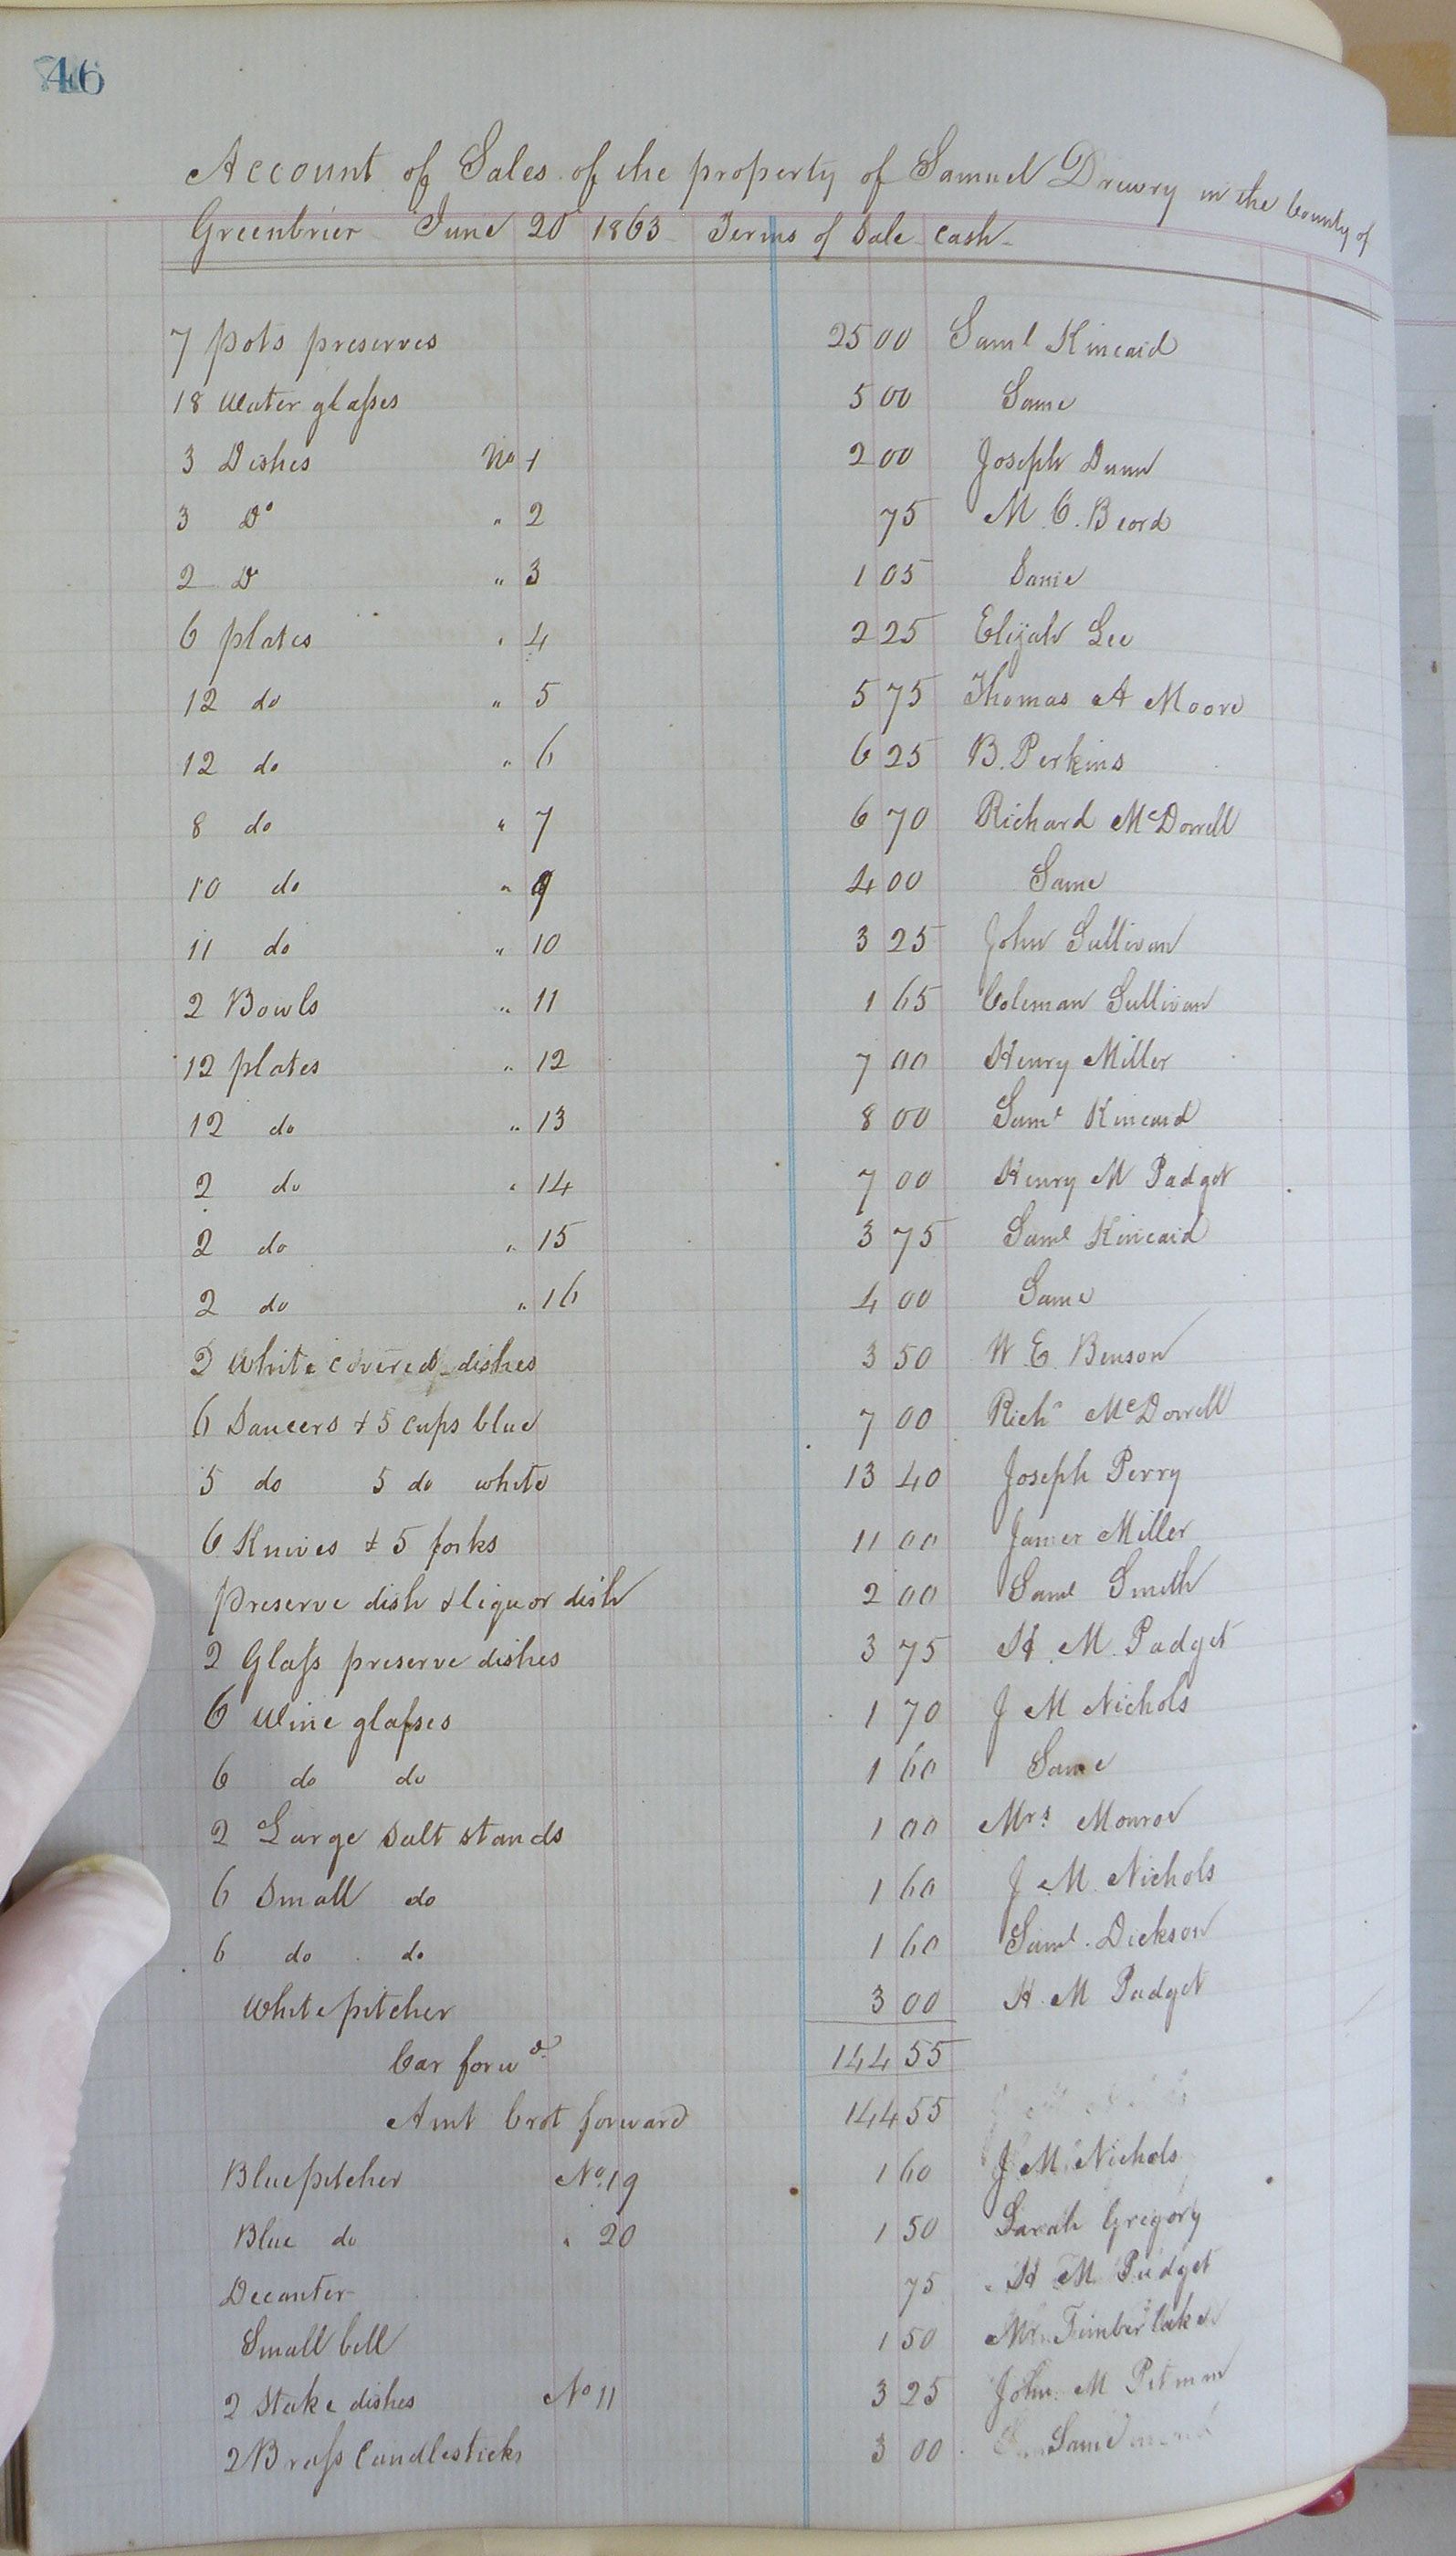 46
Account of Sales of the property of Samuel Drewry in the County of
Greenbrier June 20 1863 Terms of Sale cash
7 pots preserves 25 00 Saml Kincaid
18 Water glasses 5 00 Same
3 Dishes No 1 2 00 Joseph Dunn
3 Do " 2 75 M. C. Beard
2 D " 3 1 05 Same
6 plates " 4 2 25 Elijah Lee
12 do " 5 5 75 Thomas A Moore
12 do " 6 6 25 B. Perkins
8 do " 7 6 70 Richard McDowell
10 do " 9 4 00 Same
11 do " 10 3 25 John Sullivan
2 Bowls " 11 1 65 Coleman Sullivan
12 plates " 12 7 00 Henry Miller
12 do " 13 8 00 Saml Kincaid
2 do " 14 7 00 Henry M Padget
2 do " 15 3 75 Saml Kincaid
2 do " 16 4 00 Same
2 White covered dishes 3 50 W E. Benson
6 Saucers + 5 cups blue 7 00 Richd McDowell
5 do 5 do white 13 40 Joseph Perry
6 Knives + 5 forks 11 00 James Miller
Preserve dish + liquor dish 2 00 Saml Smith
2 Glass preserve dishes 3 75 H. M. Padget
6 Wine glasses 1 70 J M Nichols
6 do do 1 60 Same
2 Large Salt stands 1 00 Mrs Monroe
6 Small do 1 60 J. M. Nichols
6 do do 1 60 Saml. Dickson
White pitcher 3 00 H. M Padget
Car forwd 144 55
Amt brot forward 144 55
Blue pitcher No. 19 1 60 J M. Nichols
Blue do " 20 1 50 Sarah Gregory
Decanter 75 H M. Padget
Small bell 1 50 Timberlake
2 Stake dishes No 11 3 25 John. M Pitman
2 Brass Candlesticks 3 00 Same